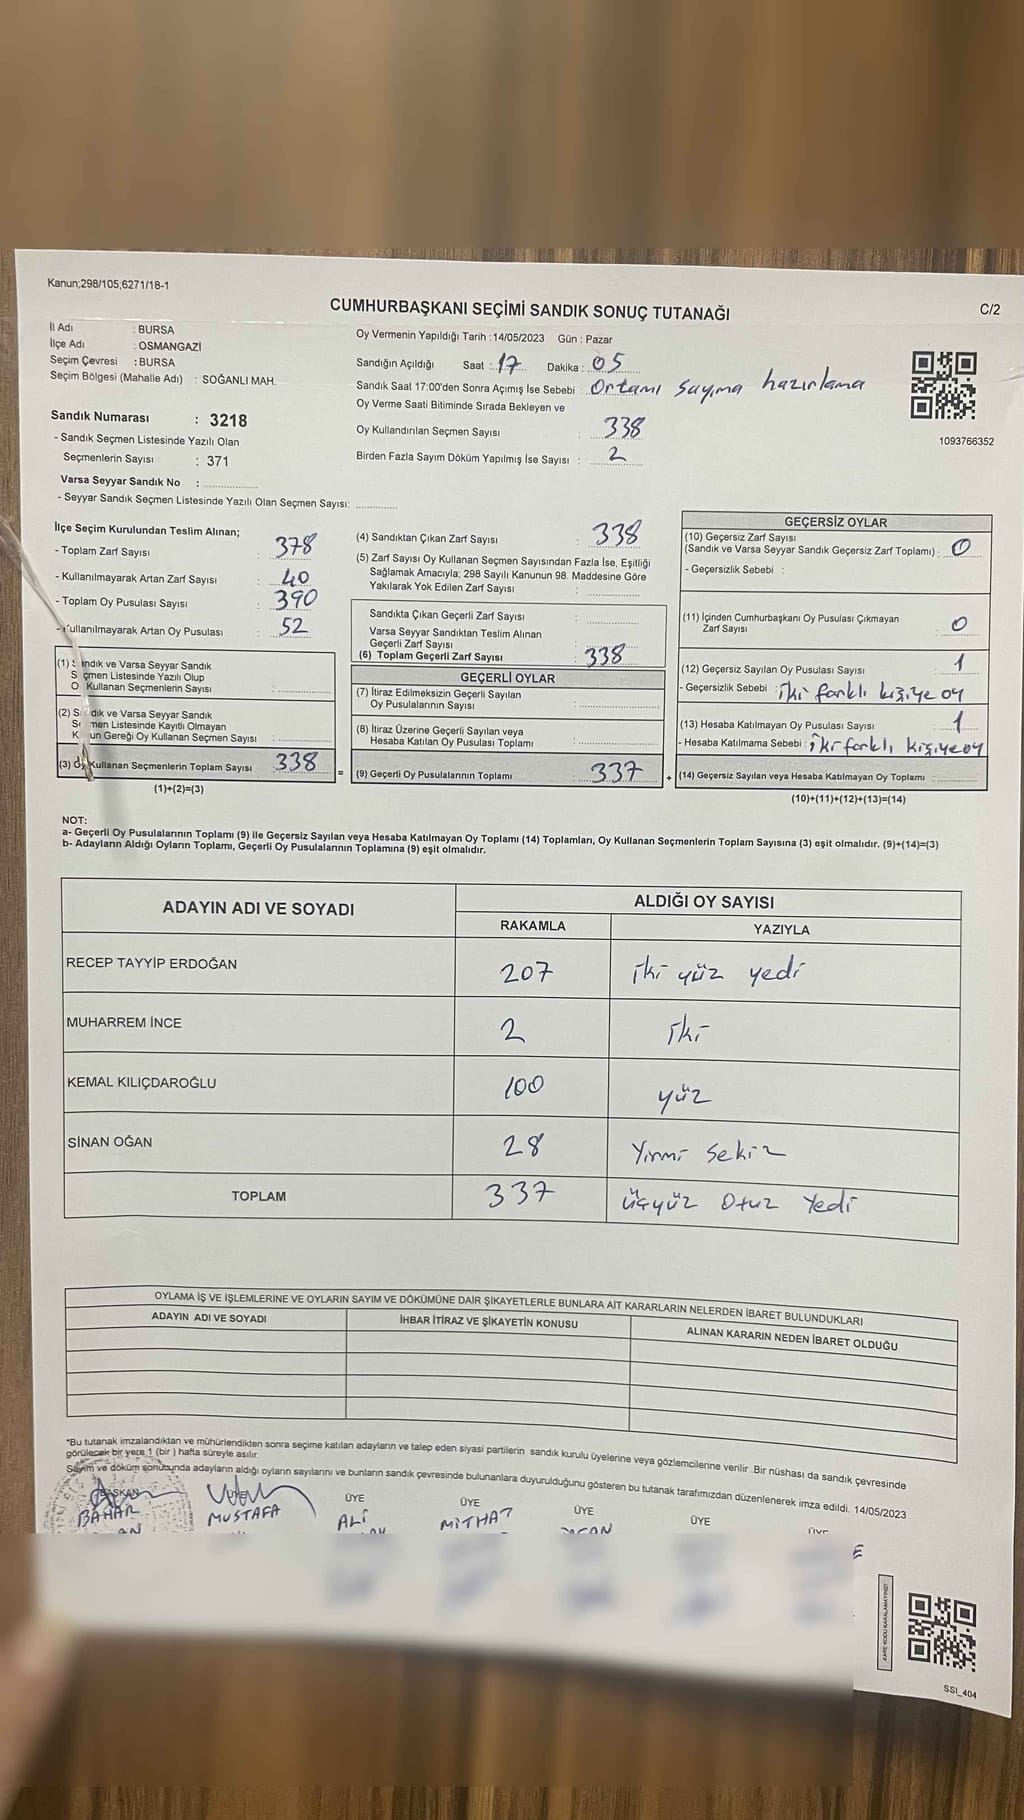 Kanun;298/105;6271/18-1
CUMHURBAŞKANI SEÇİMİ SANDIK SONUÇ TUTANAĞI
C/2
İl Adı : BURSA
İlçe Adı : OSMANGAZİ
Seçim Çevresi : BURSA
Seçim Bölgesi (Mahalle Adı) : SOĞANLI MAH.
Sandık Numarası : 3218
- Sandık Seçmen Listesinde Yazılı Olan
Seçmenlerin Sayısı : 371
Varsa Seyyar Sandık No :
- Seyyar Sandık Seçmen Listesinde Yazılı Olan Seçmen Sayısı:
Oy Vermenin Yapıldığı Tarih : 14/05/2023 Gün : Pazar
Sandığın Açıldığı Saat : 17 Dakika : 05
Sandık Saat 17:00'den Sonra Açımış İse Sebebi : Ortamı sayıma hazırlama
Oy Verme Saati Bitiminde Sırada Bekleyen ve
Oy Kullandırılan Seçmen Sayısı : 338
Birden Fazla Sayım Döküm Yapılmış İse Sayısı : 2
1093766352
İlçe Seçim Kurulundan Teslim Alınan;
- Toplam Zarf Sayısı : 378
- Kullanılmayarak Artan Zarf Sayısı : 40
- Toplam Oy Pusulası Sayısı : 390
Kullanılmayarak Artan Oy Pusulası : 52
(1) Sandık ve Varsa Seyyar Sandık
Seçmen Listesinde Yazılı Olup
Oy Kullanan Seçmenlerin Sayısı :
(2) Sandık ve Varsa Seyyar Sandık
Seçmen Listesinde Kayıtlı Olmayan
Kanun Gereği Oy Kullanan Seçmen Sayısı :
(3) Oy Kullanan Seçmenlerin Toplam Sayısı : 338
(1)+(2)=(3)
(4) Sandıktan Çıkan Zarf Sayısı : 338
(5) Zarf Sayısı Oy Kullanan Seçmen Sayısından Fazla İse, Eşitliği
Sağlamak Amacıyla; 298 Sayılı Kanunun 98. Maddesine Göre
Yakılarak Yok Edilen Zarf Sayısı :
Sandıkta Çıkan Geçerli Zarf Sayısı :
Varsa Seyyar Sandıktan Teslim Alınan
Geçerli Zarf Sayısı :
(6) Toplam Geçerli Zarf Sayısı : 338
GEÇERLİ OYLAR
(7) İtiraz Edilmeksizin Geçerli Sayılan
Oy Pusulalarının Sayısı :
(8) İtiraz Üzerine Geçerli Sayılan veya
Hesaba Katılan Oy Pusulası Toplamı :
= (9) Geçerli Oy Pusulalarının Toplamı : 337 +
GEÇERSİZ OYLAR
(10) Geçersiz Zarf Sayısı
(Sandık ve Varsa Seyyar Sandık Geçersiz Zarf Toplamı) : 0
- Geçersizlik Sebebi :
(11) İçinden Cumhurbaşkanı Oy Pusulası Çıkmayan
Zarf Sayısı : 0
(12) Geçersiz Sayılan Oy Pusulası Sayısı : 1
- Geçersizlik Sebebi : iki farklı kişiye oy
(13) Hesaba Katılmayan Oy Pusulası Sayısı : 1
- Hesaba Katılmama Sebebi : iki farklı kişiye oy
(14) Geçersiz Sayılan veya Hesaba Katılmayan Oy Toplamı :
(10)+(11)+(12)+(13)=(14)
NOT:
a- Geçerli Oy Pusulalarının Toplamı (9) ile Geçersiz Sayılan veya Hesaba Katılmayan Oy Toplamı (14) Toplamları, Oy Kullanan Seçmenlerin Toplam Sayısına (3) eşit olmalıdır. (9)+(14)=(3)
b- Adayların Aldığı Oyların Toplamı, Geçerli Oy Pusulalarının Toplamına (9) eşit olmalıdır.
ADAYIN ADI VE SOYADI
ALDIĞI OY SAYISI
RAKAMLA YAZIYLA
RECEP TAYYİP ERDOĞAN 207 iki yüz yedi
MUHARREM İNCE 2 iki
KEMAL KILIÇDAROĞLU 100 yüz
SİNAN OĞAN 28 Yirmi sekiz
TOPLAM 337 üçyüz Otuz Yedi
OYLAMA İŞ VE İŞLEMLERİNE VE OYLARIN SAYIM VE DÖKÜMÜNE DAİR ŞİKAYETLERLE BUNLARA AİT KARARLARIN NELERDEN İBARET BULUNDUKLARI
ADAYIN ADI VE SOYADI İHBAR İTİRAZ VE ŞİKAYETİN KONUSU ALINAN KARARIN NEDEN İBARET OLDUĞU
*Bu tutanak imzalandıktan ve mühürlendikten sonra seçime katılan adayların ve talep eden siyasi partilerin sandık kurulu üyelerine veya gözlemcilerine verilir .Bir nüshası da sandık çevresinde
görülecek bir yere 1 (bir ) hafta süreyle asılır.
Sayım ve döküm sonucunda adayların aldığı oyların sayılarını ve bunların sandık çevresinde bulunanlara duyurulduğunu gösteren bu tutanak tarafımızdan düzenlenerek imza edildi. 14/05/2023
BAŞKAN ÜYE ÜYE ÜYE ÜYE ÜYE ÜYE
BAHAR MUSTAFA ALİ MİTHAT
SSI_404